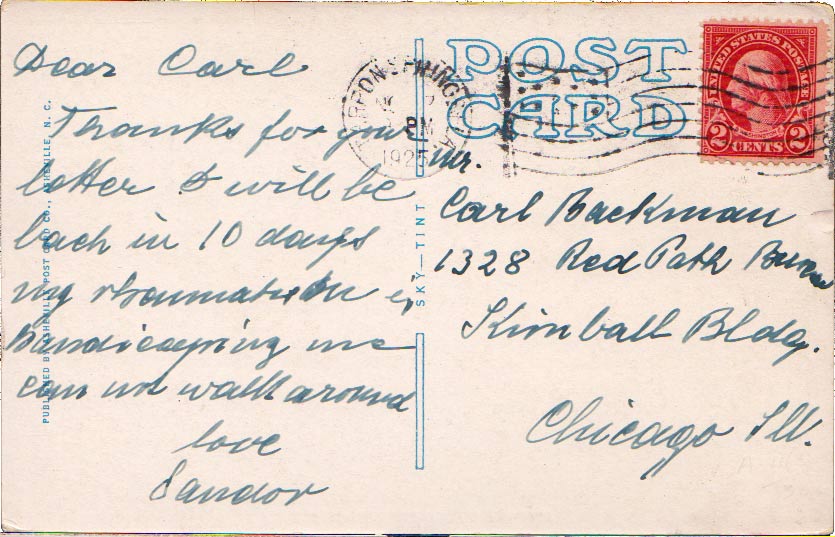 Dear Carl
Thanks for your
letter I will be
back in 10 days
my rheumatism is
handicaping me
can not walk around
love
Sandor
PUBLISHED BY ASHEVILLE POST CARD CO., ASHEVILLE, N. C.
SKY—TINT
POST
CARD
TARPON SPRINGS
PM
1925
UNITED STATES POSTAGE
2 CENTS 2
Mr.
Carl Backman
1328 Red Path
Kimball Bldg.
Chicago Ill.